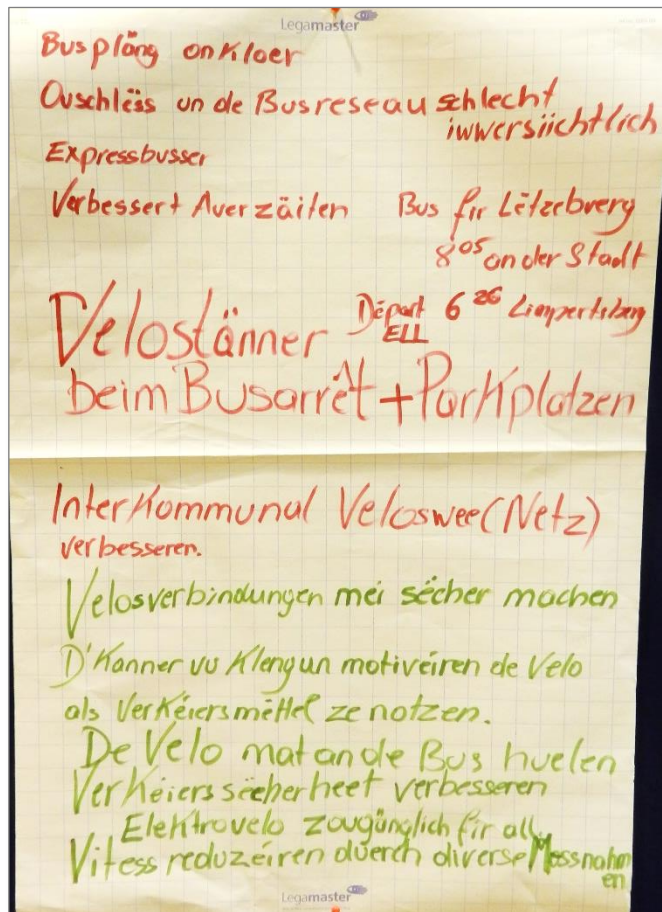 Legamaster
Buspläng onKloer
Ouschlëss un de Busreseau schlecht
iwwersiichtlich
Expressbusser
Verbessert Auerzäiten Bus fir Lëtzebuerg
8 05 an der Stadt
Départ 6 26 Limpertsberg
ELL
Velostänner
beim Busarrêt + Parkplatzen
Interkommunal Veloswee (Netz)
verbesseren.
Velosverbindungen méi sécher machen
D'Kanner vu Klengun motivéiren de Velo
als Verkéiersmëttel ze notzen.
De Velo mat an de Bus huelen
Verkéierssécherheet verbesseren
Elektrovelo zougänglich fir all
Vitess reduzéiren duerch diverse Mossnahm
en
Legamaster